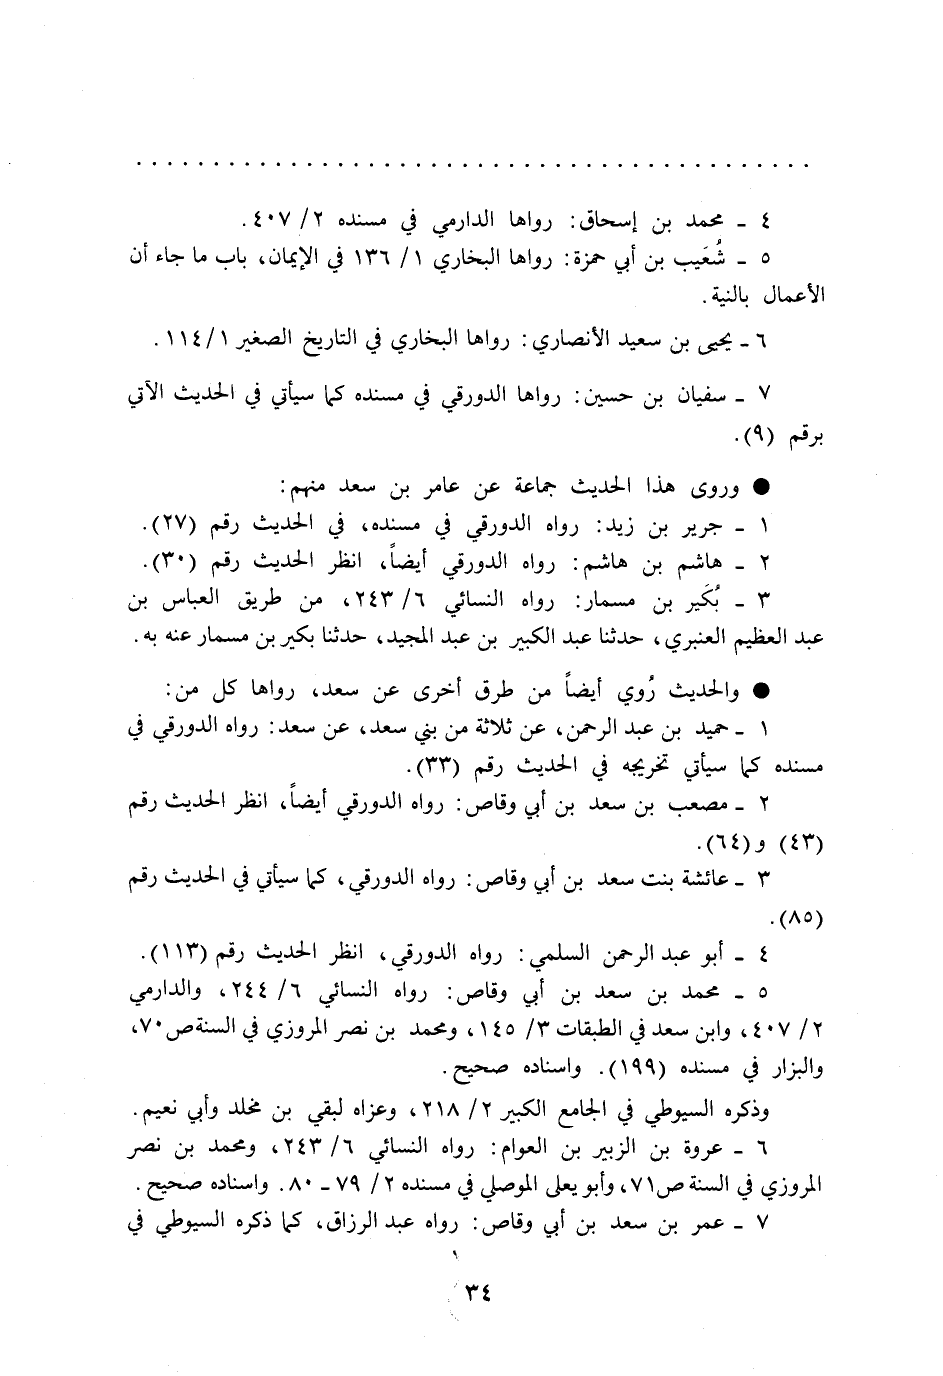 . . . . . . . . . . . . . . . . . . . . . . . . . . . . . . . . . . . . . . . . . . . .
٤ ـ محمد بن إسحاق: رواها الدارمي في مسنده ٢/ ٤٠٧.
٥ ـ شُعَيب بن أبي حمزة: رواها البخاري ١/ ١٣٦ في الإيمان، باب ما جاء أن
الأعمال بالنية.
٦ ـ يحيى بن سعيد الأنصاري: رواها البخاري في التاريخ الصغير ١/ ١١٤.
٧ ـ سفيان بن حسين: رواها الدورقي في مسنده كما سيأتي في الحديث الآتي
برقم (٩).
● وروى هذا الحديث جماعة عن عامر بن سعد منهم:
١ ـ جرير بن زيد: رواه الدورقي في مسنده، في الحديث رقم (٢٧).
٢ ـ هاشم بن هاشم: رواه الدورقي أيضاً، انظر الحديث رقم (٣٠).
٣ ـ بُكَير بن مسمار: رواه النسائي ٦/ ٢٤٣، من طريق العباس بن
عبد العظيم العنبري، حدثنا عبد الكبير بن عبد المجيد، حدثنا بكير بن مسمار عنه به.
● والحديث رُوي أيضاً من طرق أخرى عن سعد، رواها كل من:
١ ـ حميد بن عبد الرحمن، عن ثلاثة من بني سعد، عن سعد: رواه الدورقي في
مسنده كما سيأتي تخريجه في الحديث رقم (٣٣).
٢ ـ مصعب بن سعد بن أبي وقاص: رواه الدورقي أيضاً، انظر الحديث رقم
(٤٣) و(٦٤).
٣ ـ عائشة بنت سعد بن أبي وقاص: رواه الدورقي، كما سيأتي في الحديث رقم
(٨٥).
٤ ـ أبو عبد الرحمن السلمي: رواه الدورقي، انظر الحديث رقم (١١٣).
٥ ـ محمد بن سعد بن أبي وقاص: رواه النسائي ٦/ ٢٤٤، والدارمي
٢/ ٤٠٧، وابن سعد في الطبقات ٣/ ١٤٥، ومحمد بن نصر المروزي في السنة ص٧٠،
والبزار في مسنده (١٩٩). واسناده صحيح.
وذكره السيوطي في الجامع الكبير ٢/ ٢١٨، وعزاه لبقي بن مخلد وأبي نعيم.
٦ ـ عروة بن الزبير بن العوام: رواه النسائي ٦/ ٢٤٣، ومحمد بن نصر
المروزي في السنة ص٧١، وأبو يعلى الموصلي في مسنده ٢/ ٧٩ ـ ٨٠. واسناده صحيح.
٧ ـ عمر بن سعد بن أبي وقاص: رواه عبد الرزاق، كما ذكره السيوطي في
٣٤